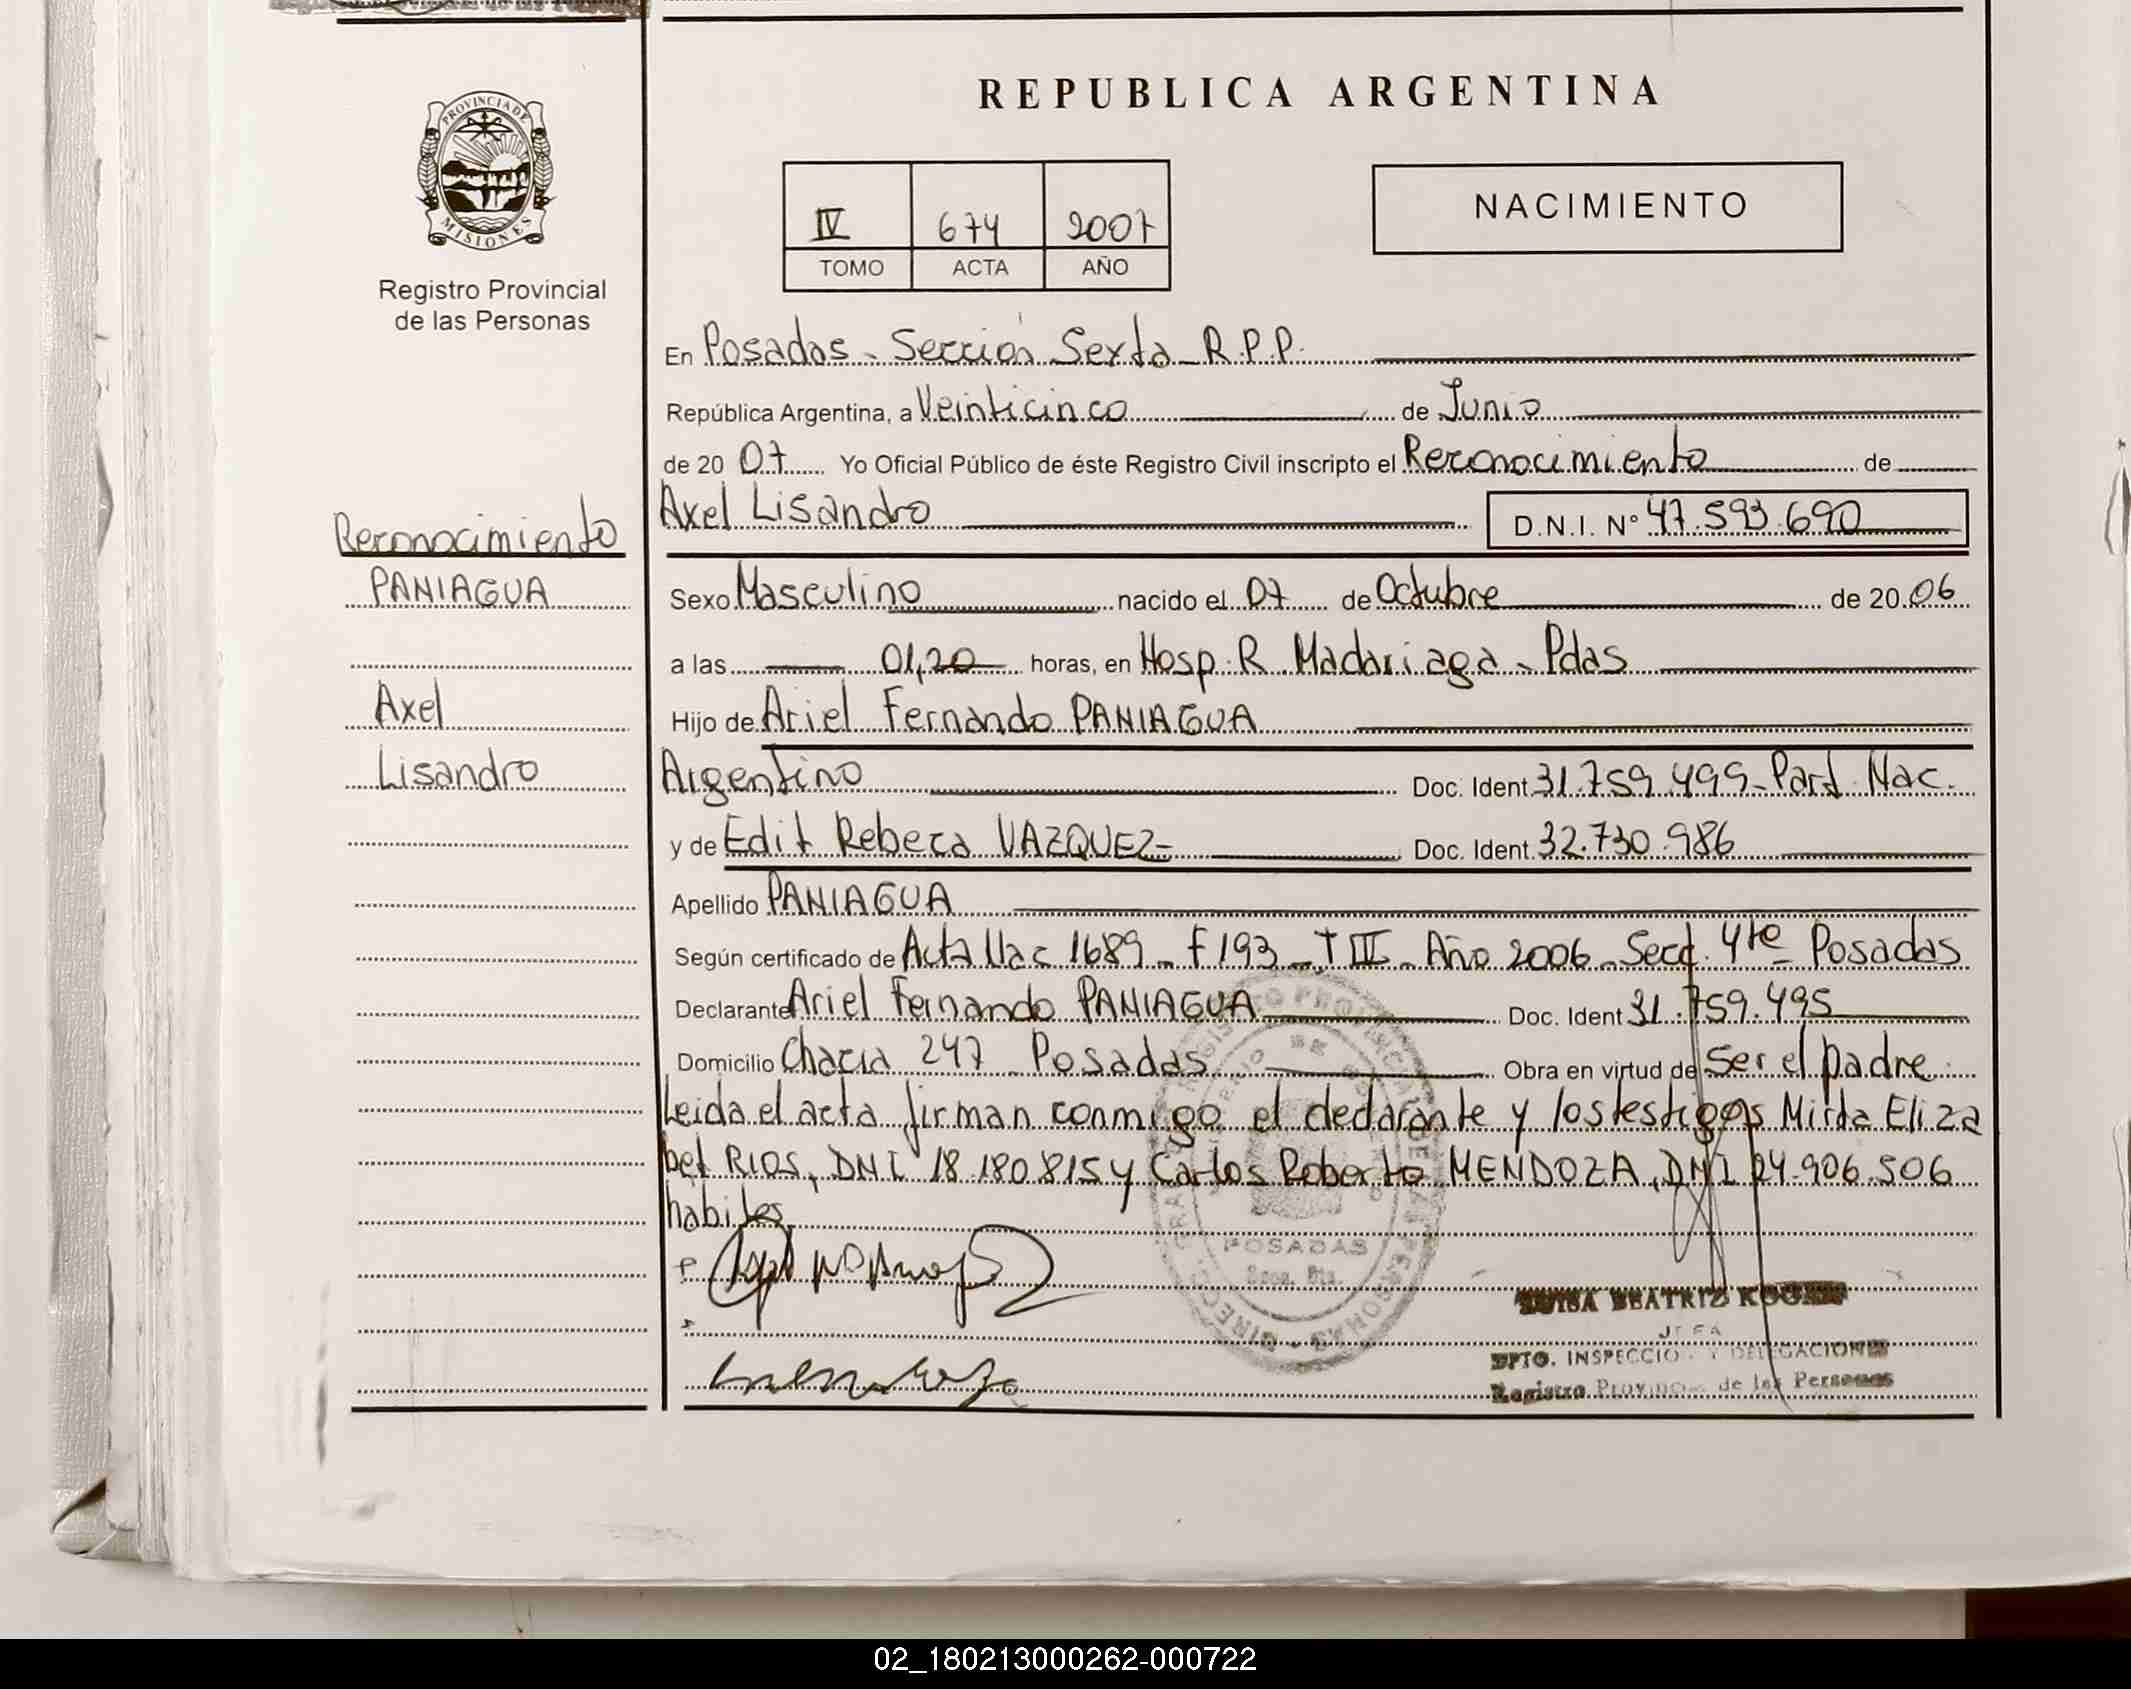 PROVINCIA DE
MISIONES
Registro Provincial
de las Personas
REPUBLICA ARGENTINA
IV 674 2007
TOMO ACTA AÑO
NACIMIENTO
En Posadas - Sección Sexta - R.P.P.
República Argentina, a Veinticinco de Junio
de 20 07 Yo Oficial Público de éste Registro Civil inscripto el Reconocimiento de
Axel Lisandro D.N.I. Nº 47.593.690
Reconocimiento
PANIAGUA
Axel
Lisandro
Sexo Masculino nacido el 07 de Octubre de 20 06
a las 01,20 horas, en Hosp. R. Madariaga - Pdas
Hijo de Ariel Fernando PANIAGUA
Argentino Doc. Ident. 31.759.495 - Part. Nac.
y de Edit Rebeca VAZQUEZ- Doc. Ident. 32.730.986
Apellido PANIAGUA
Según certificado de Acta Nac 1689 - F 193 - T III - Año 2006 - Secc. 4ta - Posadas
Declarante Ariel Fernando PANIAGUA Doc. Ident 31.759.495
Domicilio Chacra 247 Posadas Obra en virtud de Ser el padre.
Leida el acta firman conmigo el declarante y los testigos Mirta Eliza
bet RIOS, DNI 18.180.815 y Carlos Roberto MENDOZA, DNI 24.906.506
habiles.
POSADAS
BEATRIZ
JEFA
DPTO. INSPECCION Y DELEGACIONES
Registro Provincial de las Personas
02_180213000262-000722